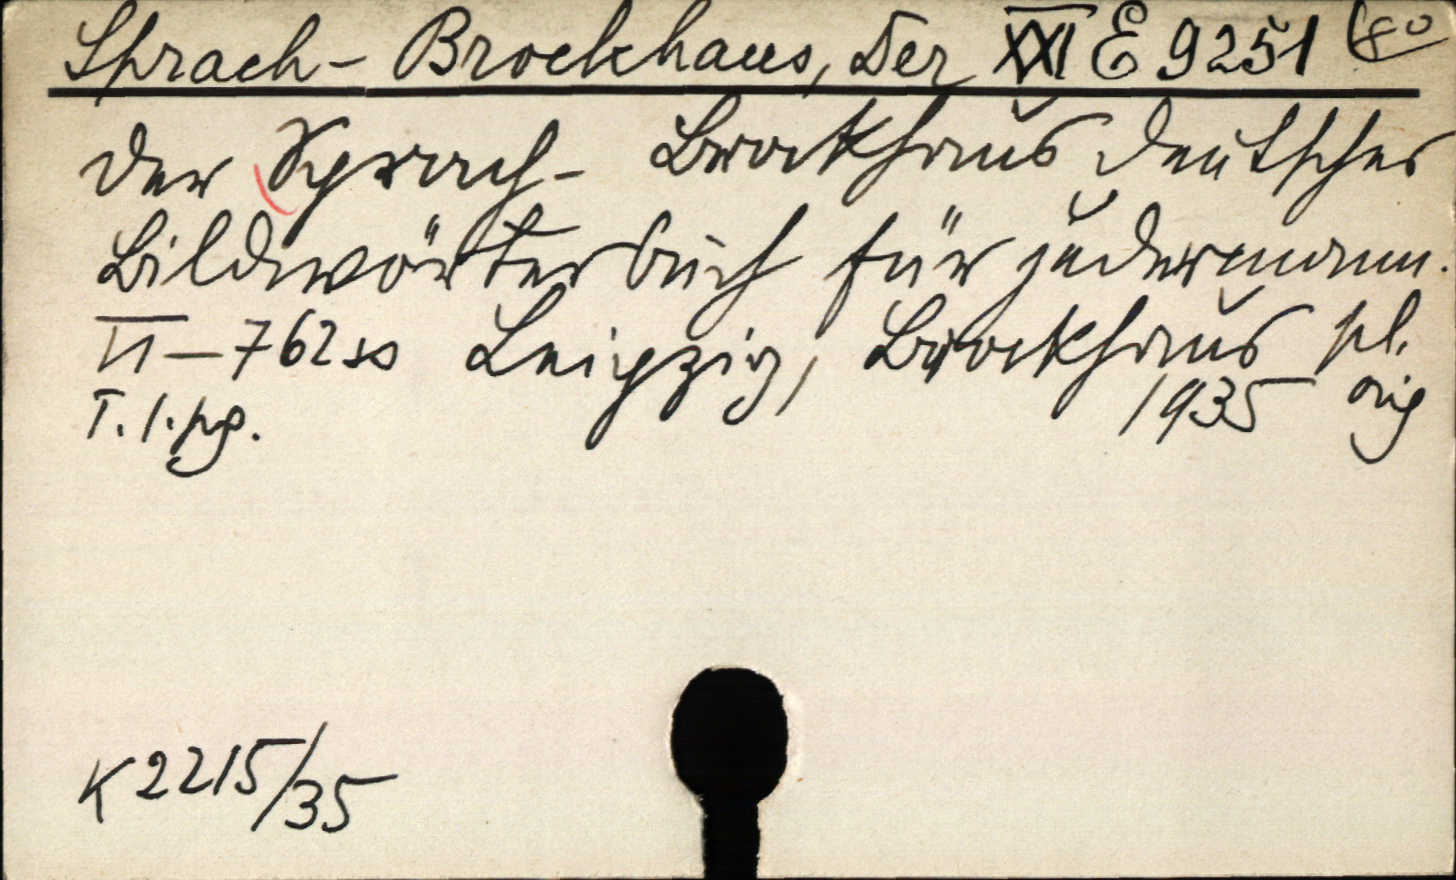 Sprach-Brockhaus, Der XXI E 9251
Der Sprach-Brockhaus Deutsches
Bildwörterbuch für jedermann.
VI-762 ss Leipzig, Brockhaus pl.
T. 1. pg. 1935 orig
K 2215/35